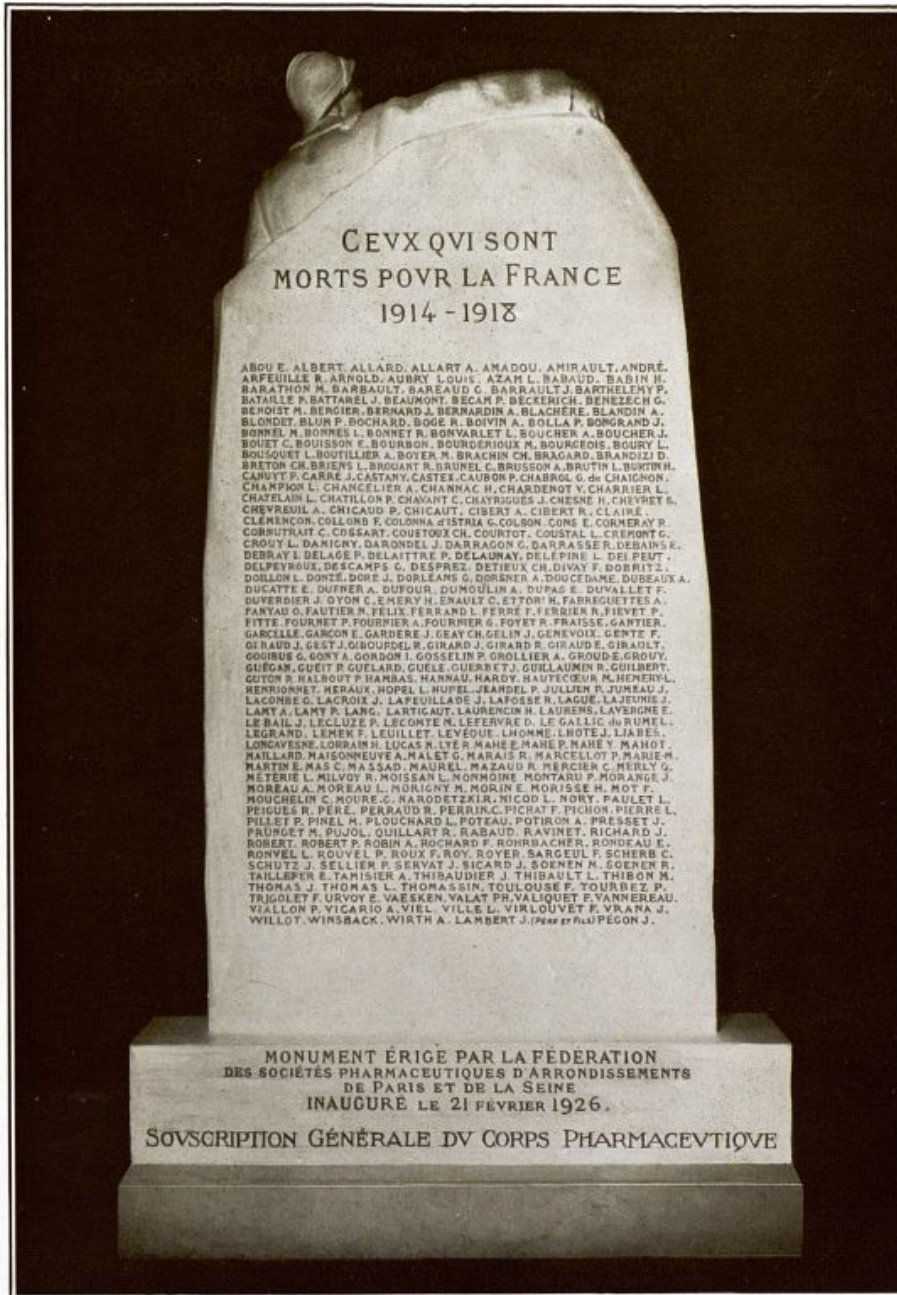 CEVX QVI SONT
MORTS POVR LA FRANCE
1914 - 1918
ABOU E. ALBERT. ALLARD. ALLART A. AMADOU. AMIRAULT. ANDRÉ.
ARFEUILLE R. ARNOLD. AUBRY LOUIS. AZAM L. BABAUD. BABIN H.
BARATHON M. BARBAULT. BAREAUD G. BARRAULT J. BARTHELEMY P.
BATAILLE P. BATTAREL J. BEAUMONT. BECAM P. BECKERICH. BENEZECH G.
BENOIST M. BERGIER. BERNARD J. BERNARDIN A. BLACHÈRE. BLANDIN A.
BLONDET. BLUM P. BOCHARD. BOGE R. BOIVIN A. BOLLA P. BONGRAND J.
BONNEL M. BONNES L. BONNET R. BONVARLET L. BOUCHER A. BOUCHER J.
BOUET C. BOUISSON E. BOURBON. BOURDERIOUX M. BOURGEOIS. BOURY L.
BOUSQUET L. BOUTILLIER A. BOYER M. BRACHIN CH. BRAGARD. BRANDIZI D.
BRETON CH. BRIENS L. BROUANT R. BRUNEL C. BRUSSON A. BRUTIN L. BURTIN H.
CANUYT P. CARRÉ J. CASTANY. CASTEX. CAUBON P. CHABROL G. de CHAIGNON.
CHAMPION L. CHANCELIER A. CHANNAC H. CHARDENOT V. CHARRIER L.
CHATELAIN L. CHATILLON P. CHAVANT C. CHAYRIGUÈS J. CHESNÉ H. CHEVRET S.
CHEVREUIL A. CHICAUD P. CHICAUT. CIBERT A. CIBERT R. CLAIRÉ.
CLÉMENÇON. COLLOMB F. COLONNA d'ISTRIA G. COLSON. CONS E. CORMERAY R.
CORNUTRAIT C. COSSART. COUETOUX CH. COURTOT. COUSTAL L. CRÉMONT G.
CROUY L. DAMIGNY. DARONDEL J. DARRAGON G. DARRASSE R. DEBAINS E.
DEBRAY I. DELAGE P. DELAITTRE P. DELAUNAY. DELÉPINE L. DELPEUT.
DELPEYROUX. DESCAMPS G. DESPREZ. DETIEUX CH. DIVAY F. DOBRITZ.
DOILLON L. DONZÉ. DORÉ J. DORLÉANS G. DORGNER A. DOUCEDAME. DUBEAUX A.
DUCATTE E. DUFNER A. DUFOUR. DUMOULIN A. DUPAS E. DUVALLET F.
DUVERDIER J. DYON C. EMERY H. ENAULT C. ETTORI H. FABREGUETTES A.
FANYAU O. FAUTIER N. FÉLIX. FERRAND L. FERRÉ F. FERRIER R. FIEVET P.
FITTE. FOURNET P. FOURNIER A. FOURNIER G. FOYET R. FRAISSE. GANTIER.
GARCELLE. GARÇON E. GARDÈRE J. GEAY CH. GELIN J. GENEVOIX. GENTE F.
GIRAUD J. GEST J. GIBOURDEL R. GIRARD J. GIRARD R. GIRAUD E. GIRAULT.
GOGIBUS G. GONY A. GORDON I. GOSSELIN P. GROLLIER A. GROUD E. GROUY.
GUÉGAN. GUEIT P. GUÉLARD. GUELE. GUERBET J. GUILLAUMIN R. GUILBERT.
GUYON R. HALBOUT P. HAMBAS. HANNAU. HARDY. HAUTECŒUR M. HEMERY-L.
HENRIONNET. HERAUX. HOPEL L. HUFEL. JEANDEL P. JULLIEN P. JUMEAU J.
LACOMBE G. LACROIX J. LAFEUILLADE J. LAFOSSE R. LAGUE. LAJEUNIE J.
LAMY A. LAMY P. LANG. LARTIGAUT. LAURENCIN H. LAURENS. LAVERGNE E.
LE BAIL J. LECLUZE P. LECOMTE M. LEFEBVRE D. LE GALLIC du RUMEL.
LEGRAND. LEMEK F. LEUILLET. LEVÊQUE. LHOMME. LHOTE J. LIABES.
LONGAVESNE. LORRAIN H. LUCAS N. LYE R. MAHÉ E. MAHE P. MAHÉ Y. MAHOT.
MAILLARD. MAISONNEUVE A. MALET G. MARAIS R. MARCELLOT P. MARIE-M.
MARTIN E. MAS C. MASSAD. MAUREL. MAZAUD R. MERCIER C. MERLY G.
MÉTÉRIÉ L. MILVOY R. MOISSAN L. MONMOINE. MONTARU P. MORANGE J.
MOREAU A. MOREAU L. MORIGNY M. MORIN E. MORISSE H. MOT F.
MOUCHELIN C. MOURE. G. NARODETZKI. R. NICOD L. NORY. PAULET L.
PEIGUES R. PÈRE. PERRAUD R. PERRIN. C. PICHAT F. PICHON. PIERRE L.
PILLET P. PINEL M. PLOUCHARD L. POTEAU. POTIRON A. PRESSET J.
PRUNGET M. PUJOL. QUILLART R. RABAUD. RAVINET. RICHARD J.
ROBERT. ROBERT P. ROBIN A. ROCHARD F. ROHRBACHER. RONDEAU E.
RONVEL L. ROUVEL P. ROUX F. ROY. ROYER. SARGEUL F. SCHERB C.
SCHUTZ J. SELLIER P. SERVAT J. SICARD J. SOENEN M. SOENEN R.
TAILLEFER E. TAMISIER A. THIBAUDIER J. THIBAULT L. THIBON M.
THOMAS J. THOMAS L. THOMASSIN. TOULOUSE F. TOURBEZ P.
TRIGOLET F. URVOY E. VAESKEN. VALAT PH. VALIQUET F. VANNEREAU.
VIALLON P. VICARIO A. VIEL. VILLE L. VIRLOUVET F. VRANA J.
WILLOT. WINSBACK. WIRTH A. LAMBERT J. (PÈRE ET FILS) PÉGON J.
MONUMENT ÉRIGÉ PAR LA FÉDÉRATION
DES SOCIÉTÉS PHARMACEUTIQUES D'ARRONDISSEMENTS
DE PARIS ET DE LA SEINE
INAUGURÉ LE 21 FÉVRIER 1926.
SOVSCRIPTION GÉNÉRALE DV CORPS PHARMACEVTIQVE